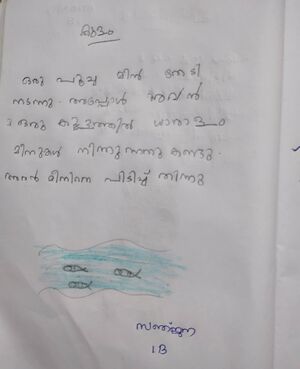 കുളം
ഒരു പൂച്ച മീൻ തേടി
നടന്നു. അപ്പോൾ അവൻ
ഒരു കുളത്തിൽ ധാരാളം
മീനുകൾ നിന്നുന്നതു കണ്ടു.
അവൻ മീനിനെ പിടിച്ച് തിന്നു
സഞ്ജന
1.B